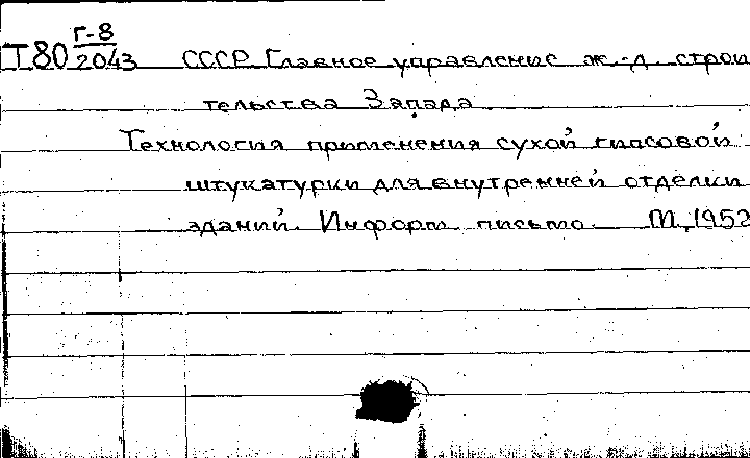 Г-8
Т80 2043 СССР Главное управление ж.-д. строи
тельства Запада
Технология применения сухой гипсовой
штукатурки для внутренней отделки
зданий. Информ. письмо. М., 1952